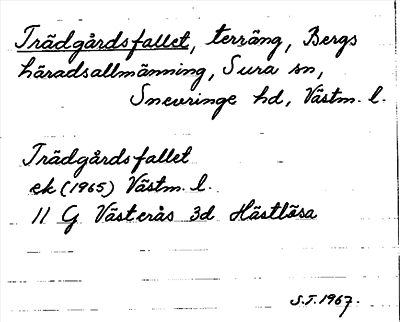 Trädgårdsfallet, terräng, Bergs
häradsallmänning, Sura sn,
Snevringe hd, Västm. l.
Trädgårdsfallet
ek (1965) Västm. l.
11 G Västerås 3d Hästlösa
S.T. 1967.